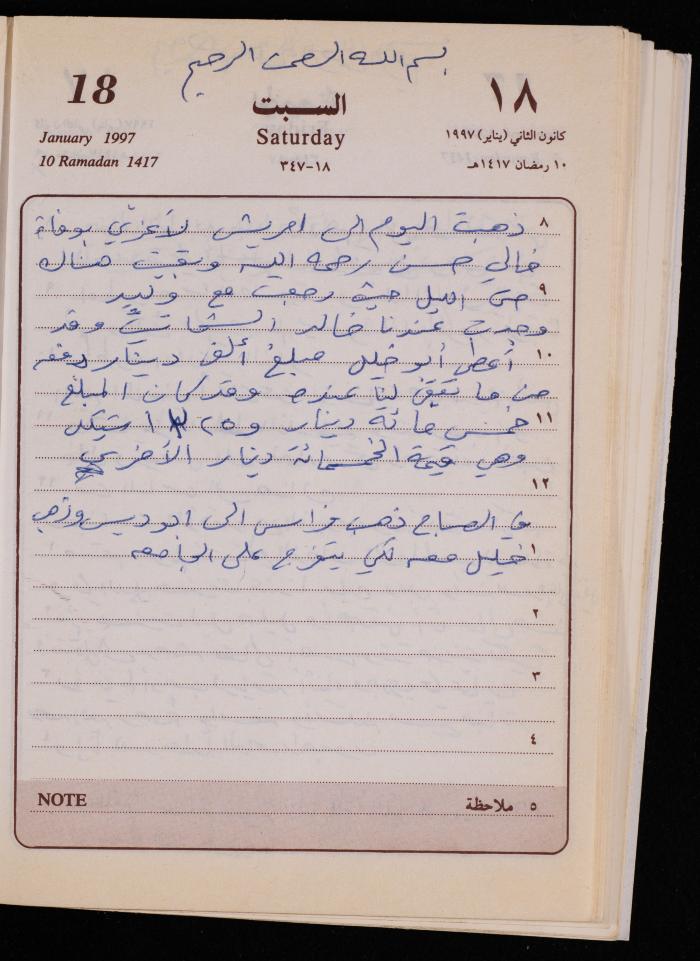 بسم الله الرحمن الرحيم
18
السبت
١٨
January 1997
Saturday
كانون الثاني (يناير) ١٩٩٧
10 Ramadan 1417
١٨-٣٤٧
١٠ رمضان ١٤١٧هـ
٨ ذهبت اليوم الى لأعزي بوفاة
خالي حسن رحمه الله وبقيت هناك
٩ حتى الليل حيث رجعت مع وليد
وجدت عندنا خالد وقد
١٠ أعطى أبو خليل مبلغ ألف دينار دفعه
من ما تبقى لنا عنده وقد كان المبلغ
١١ خمس مائة دينار و شيكل
وهي قيمة الخمسمائة دينار الأخرى
١٢
في الصباح ذهب فراس الى ابوديس وذهب
١ خليل معه لكي يتفرج على الجامعه
٢
٣
٤
NOTE
٥ ملاحظة